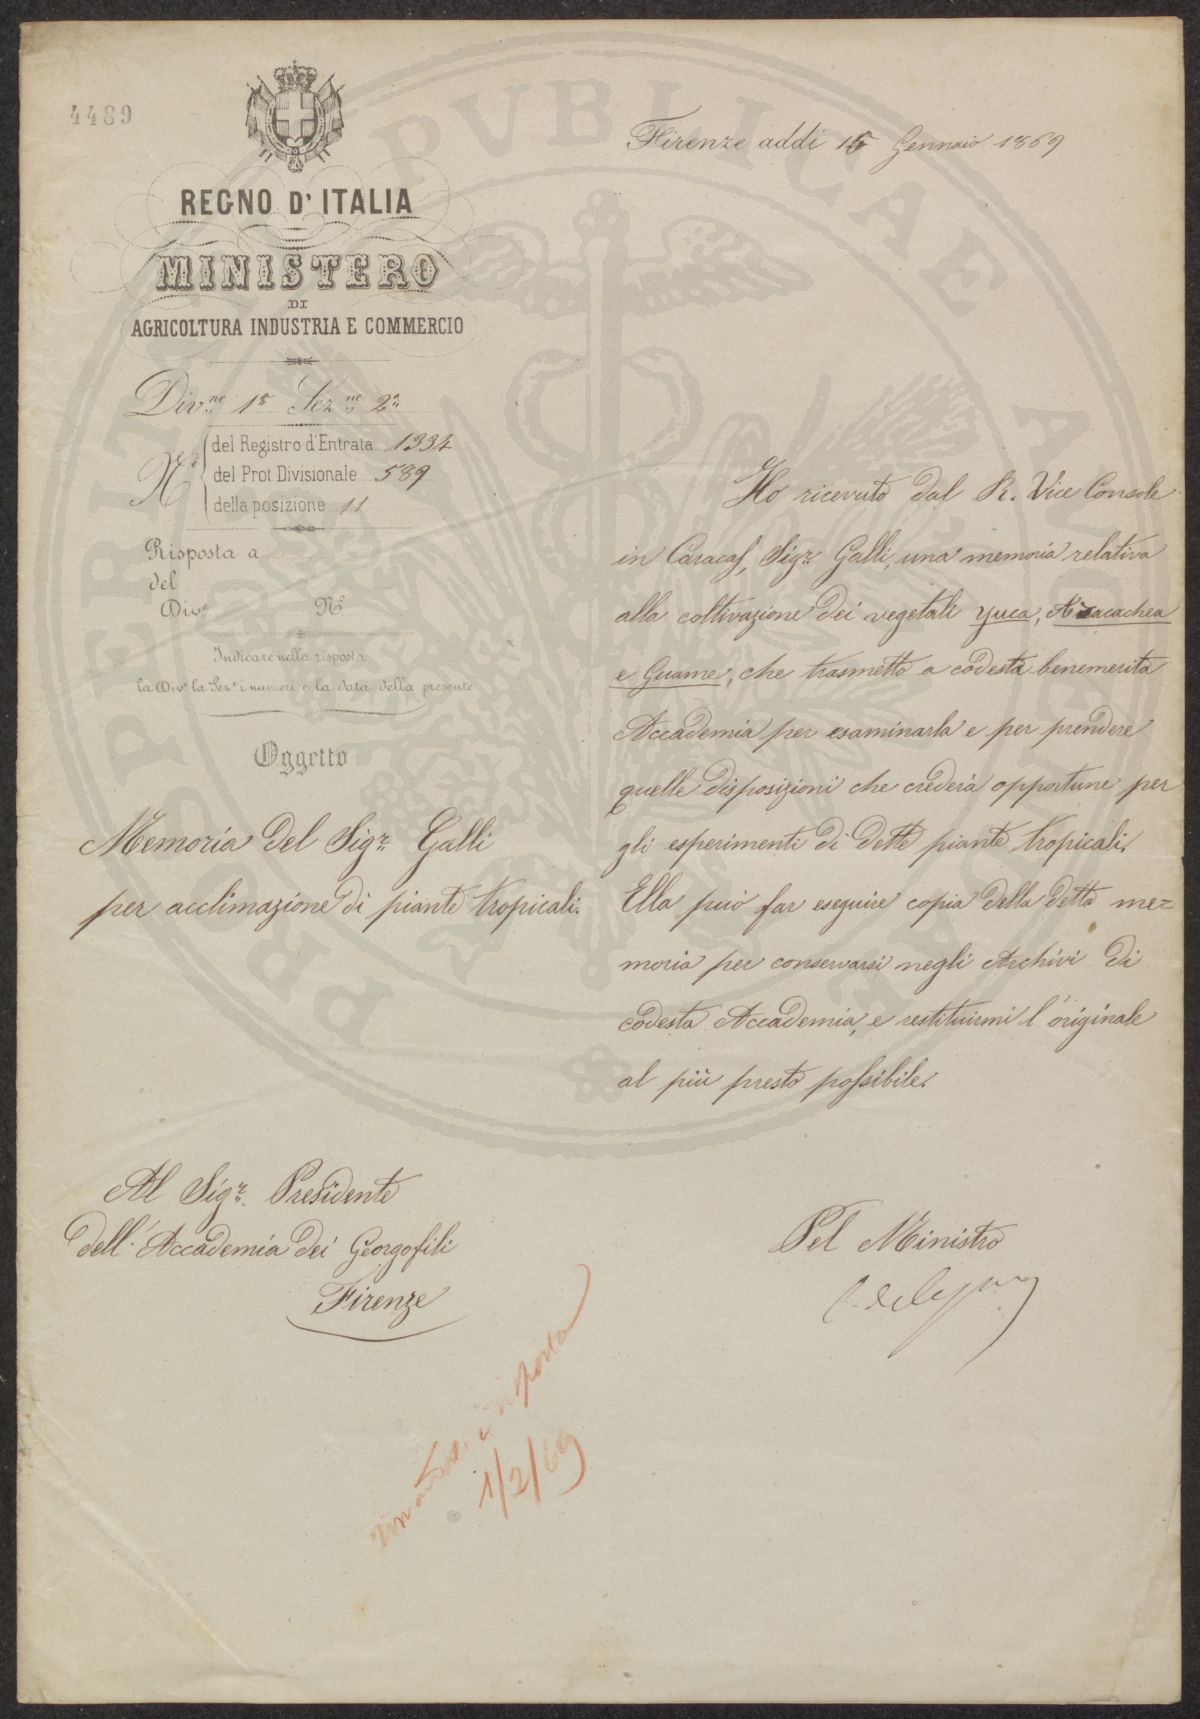 4489
REGNO D'ITALIA
MINISTERO
DI
AGRICOLTURA INDUSTRIA E COMMERCIO
Firenze addì 16 Gennaio 1869
Div.ne 1a Sez.ne 2a
N.° del Registro d'Entrata 1334
del Prot Divisionale 539
della posizione 11
Risposta a
del
Div.e N.°
Indicare nella risposta
la Div.e la Sez.e i numeri e la data della presente
Oggetto
Memoria del Sigr. Galli
per acclimazione di piante tropicali.
Ho ricevuto dal R. Vice Console
in Caracas, Sigr. Galli, una memoria relativa
alla coltivazione dei vegetali Yuca, Aracachea
e Guame, che trasmetto a codesta benemerita
Accademia per esaminarla e per prendere
quelle disposizioni che crederà opportune per
gli esperimenti di dette piante tropicali.
Ella può far eseguire copia della detta me=
moria per conservarsi negli Archivi di
codesta Accademia, e restituirmi l'originale
al più presto possibile.
Al Sigr. Presidente
dell'Accademia dei Georgofili
Firenze
Pel Ministro
1/2/69
PROPRIETAS PVBLICAE AVGET